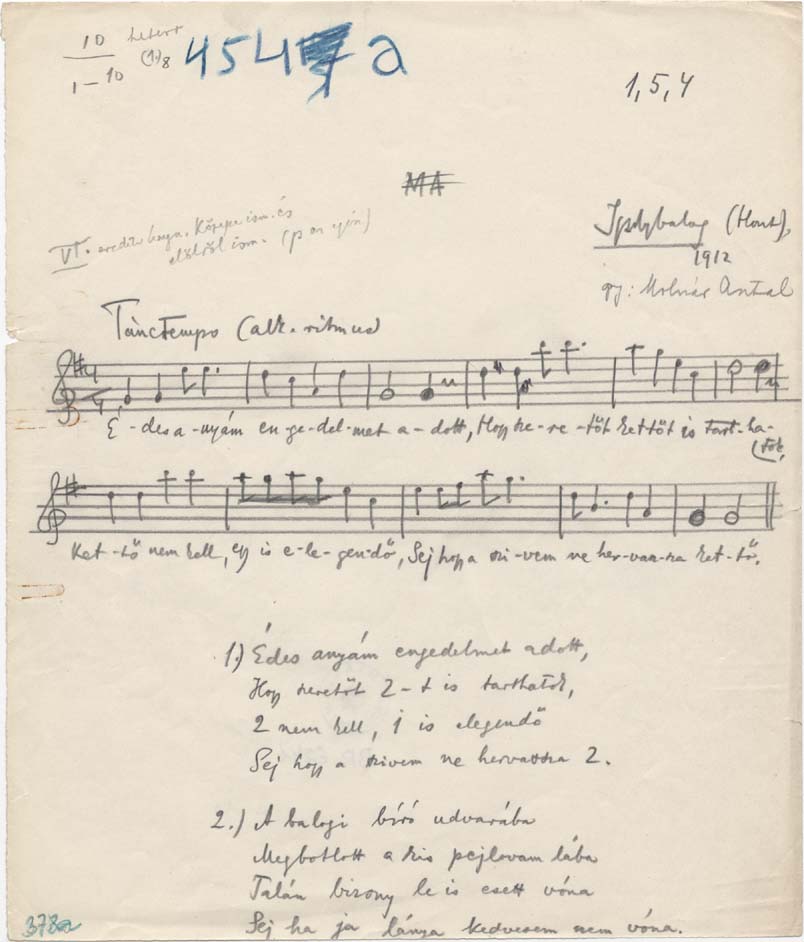 10
1–10
(1.)8
454 a
1, 5, 4
MA
Ipolybalog (Hont),
1912
gy: Molnár Antal
VI.
Tánctempo (alk. ritmus)
É-des a-nyám en-ge-del-met a-dott, Hogy sze-re-tőt kettőt is tart-ha-
tok,
Ket-tő nem kell, egy is e-le-gen-dő, Sej hogy a szi-vem ne her-vasz-sza ket-tő.
1.) Édes anyám engedelmet adott,
Hogy szeretőt 2-t is tarthatok,
2 nem kell, 1 is elegendő
Sej hogy a szivem ne hervassza 2.
2.) A balogi biró udvarába
Megbotlott a kis pejlovam lába
Talán bizony le is esett vóna
Sej ha ja lánya kedvesem nem vóna.
378a